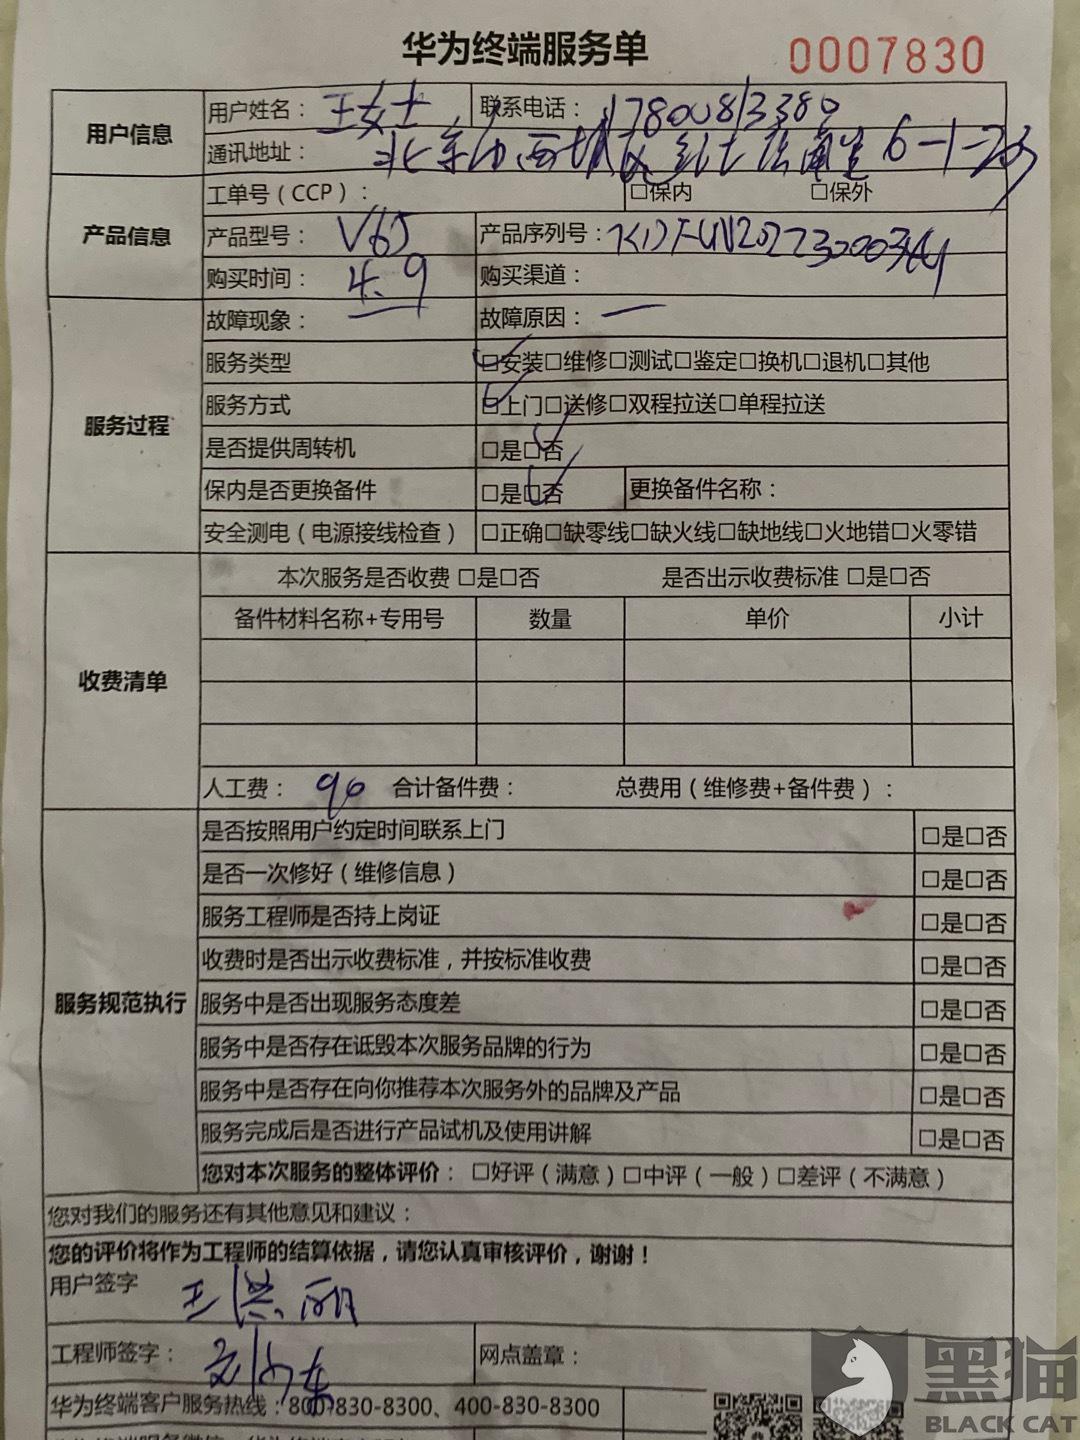 华为终端服务单
0007830
用户信息
用户姓名： 王女士 联系电话： 17800813380
通讯地址： 北京市西城区 6-1-203
产品信息
工单号（CCP）： □保内 □保外
产品型号： V65 产品序列号：
购买时间： 4.9 购买渠道：
服务过程
故障现象： 故障原因： —
服务类型 □安装□维修□测试□鉴定□换机□退机□其他
服务方式 □上门□送修□双程拉送□单程拉送
是否提供周转机 □是□否
保内是否更换备件 □是□否 更换备件名称：
安全测电（电源接线检查） □正确□缺零线□缺火线□缺地线□火地错□火零错
收费清单
本次服务是否收费 □是□否 是否出示收费标准 □是□否
备件材料名称+专用号 数量 单价 小计
人工费： 90 合计备件费： 总费用（维修费+备件费）：
服务规范执行
是否按照用户约定时间联系上门 □是□否
是否一次修好（维修信息） □是□否
服务工程师是否持上岗证 □是□否
收费时是否出示收费标准，并按标准收费 □是□否
服务中是否出现服务态度差 □是□否
服务中是否存在诋毁本次服务品牌的行为 □是□否
服务中是否存在向你推荐本次服务外的品牌及产品 □是□否
服务完成后是否进行产品试机及使用讲解 □是□否
您对本次服务的整体评价： □好评（满意）□中评（一般）□差评（不满意）
您对我们的服务还有其他意见和建议：
您的评价将作为工程师的结算依据，请您认真审核评价，谢谢！
用户签字 王洪丽
工程师签字： 网点盖章：
华为终端客户服务热线：800-830-8300、400-830-8300
黑猫
BLACK CAT